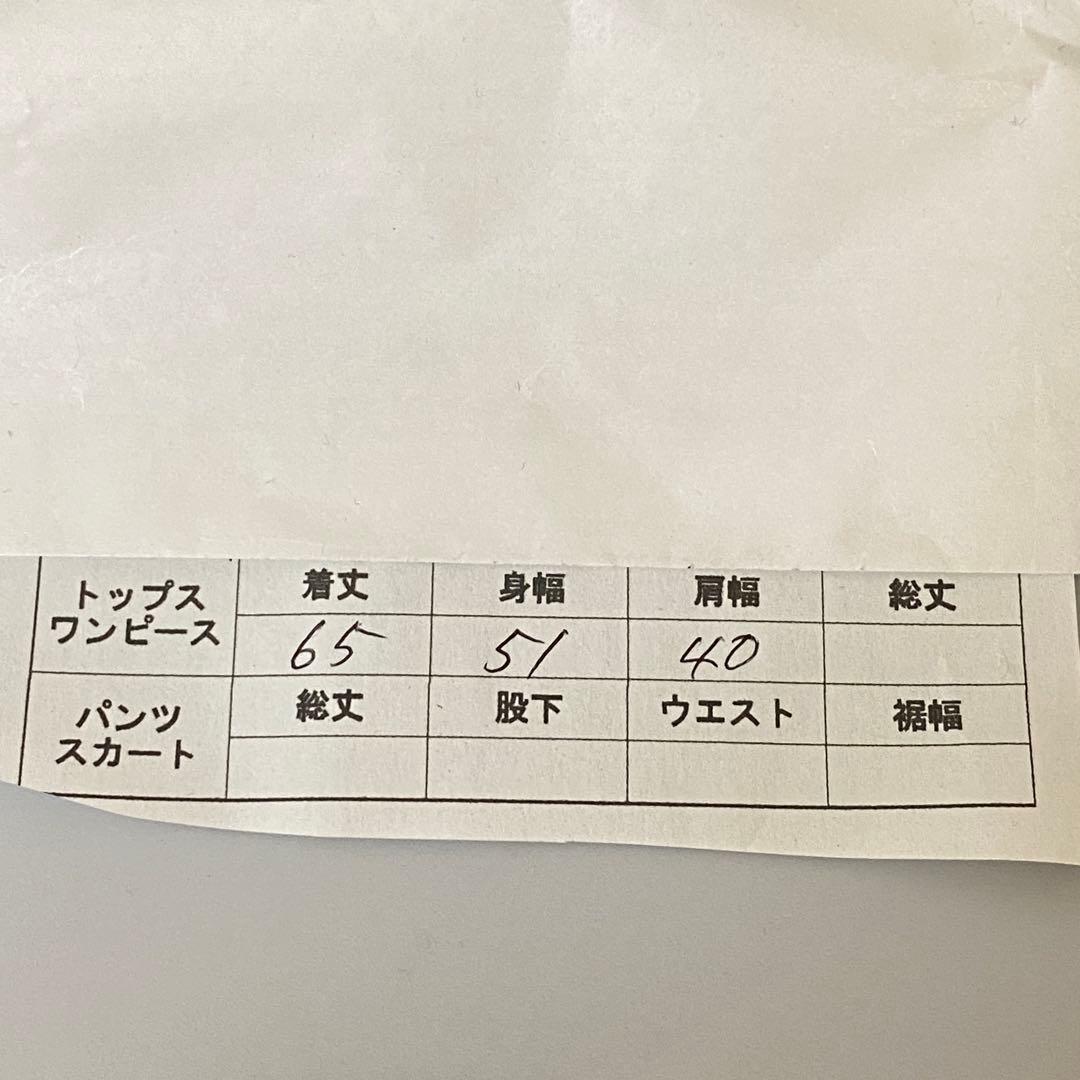 トップス
ワンピース
着丈 身幅 肩幅 総丈
65 51 40
パンツ
スカート
総丈 股下 ウエスト 裾幅